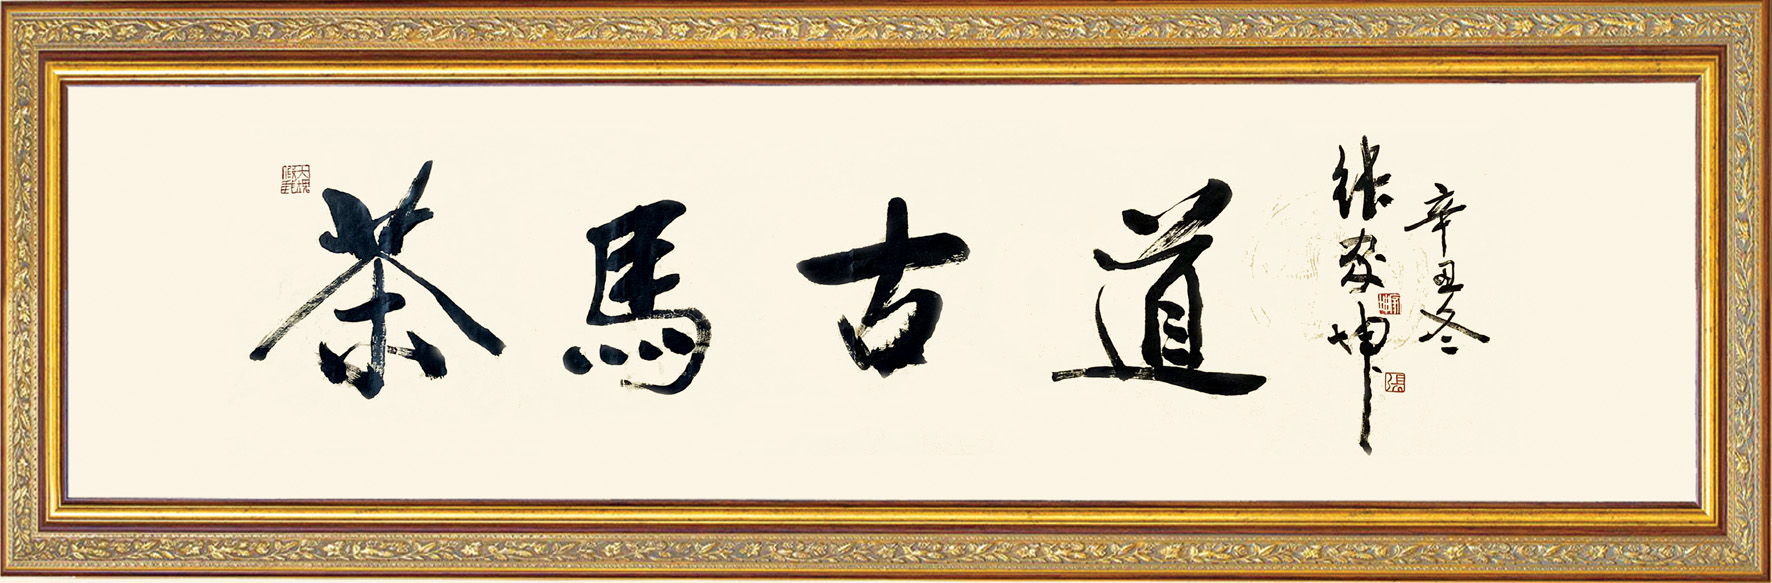 茶馬古道
辛丑冬
張家坤